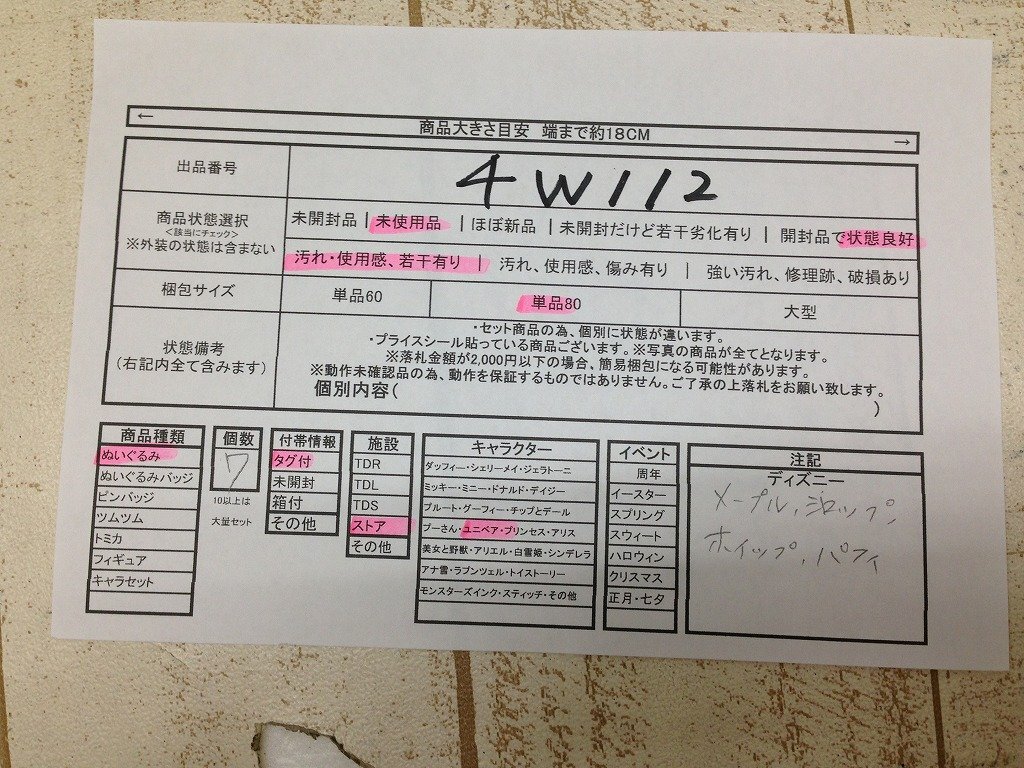 ← 商品大きさ目安 端まで約18CM →
出品番号 4W112
商品状態選択
<該当にチェック>
※外装の状態は含まない
未開封品 | 未使用品 | ほぼ新品 | 未開封だけど若干劣化有り | 開封品で状態良好
汚れ・使用感、若干有り | 汚れ、使用感、傷み有り | 強い汚れ、修理跡、破損あり
梱包サイズ 単品60 単品80 大型
状態備考
(右記内全て含みます)
・セット商品の為、個別に状態が違います。
・プライスシール貼っている商品ございます。※写真の商品が全てとなります。
※落札金額が2,000円以下の場合、簡易梱包になる可能性があります。
※動作未確認品の為、動作を保証するものではありません。ご了承の上落札をお願い致します。
個別内容( )
商品種類
ぬいぐるみ
ぬいぐるみバッジ
ピンバッジ
ツムツム
トミカ
フィギュア
キャラセット
個数
7
10以上は
大量セット
付帯情報
タグ付
未開封
箱付
その他
施設
TDR
TDL
TDS
ストア
その他
キャラクター
ダッフィー・シェリーメイ・ジェラトーニ
ミッキー・ミニー・ドナルド・デイジー
プルート・グーフィー・チップとデール
プーさん・ユニベア・プリンセス・アリス
美女と野獣・アリエル・白雪姫・シンデレラ
アナ雪・ラプンツェル・トイストーリー
モンスターズインク・スティッチ・その他
イベント
周年
イースター
スプリング
スウィート
ハロウィン
クリスマス
正月・七夕
注記
ディズニー
メープル,シロップ,
ホイップ,パフィ